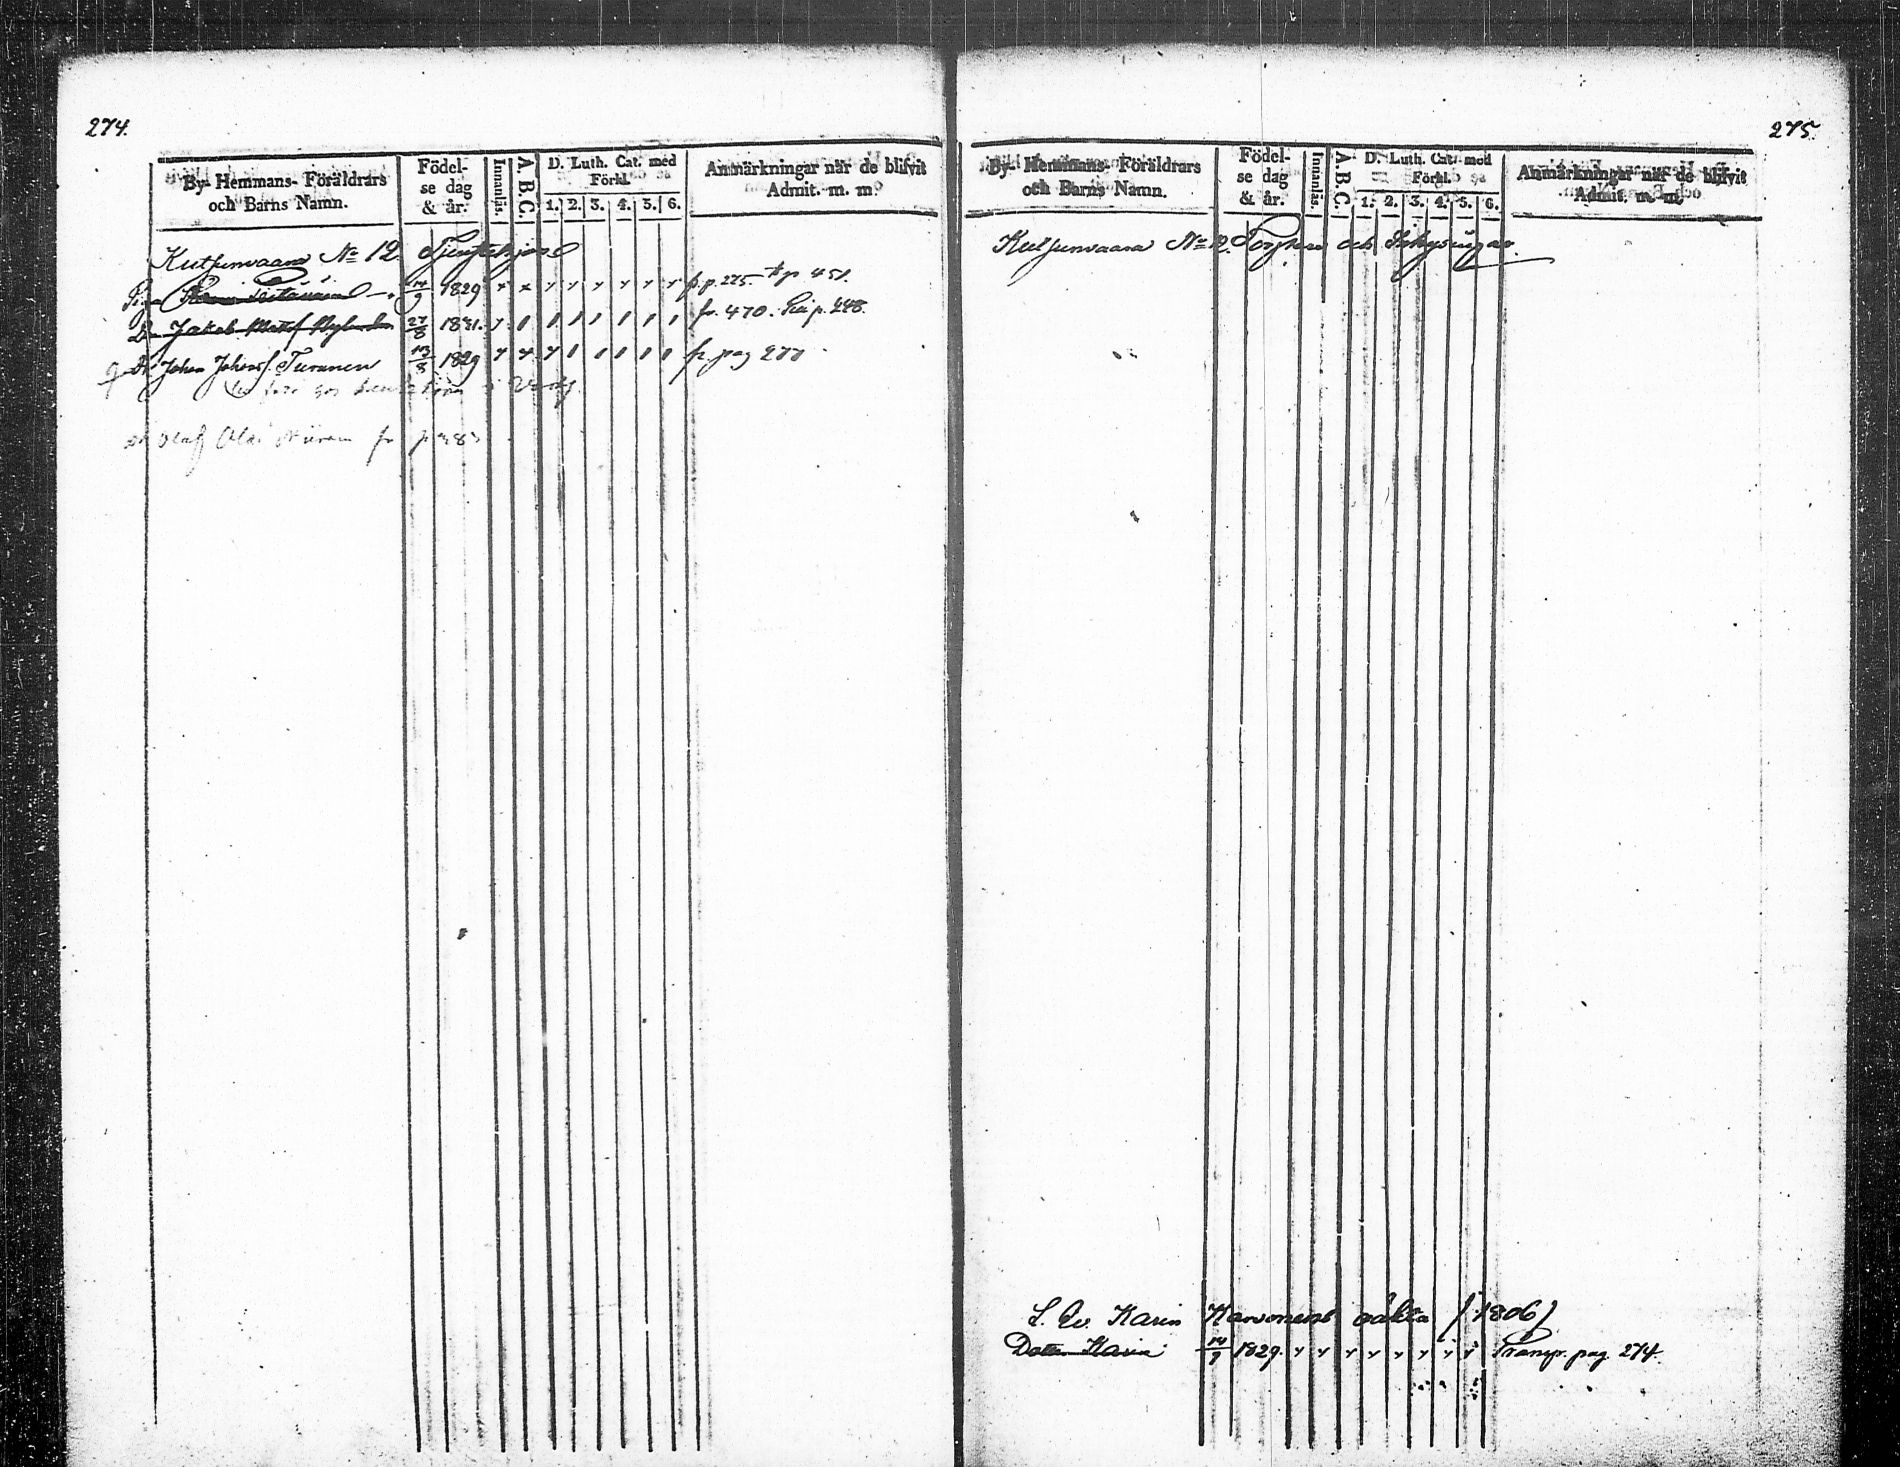 274.
By- Hemmans- Föräldrars och Barns Namn.
Födel-se dag & år.
Innanläs.
A. B. C.
D. Luth. Cat. med Förkl.
1. 2. 3. 4. 5. 6.
Anmärkningar när de blifvit Admit. m. m.
Kutsunvaara No 12. Tjenstehjon
Piga 14/9 1829 p. 275. p 451.
Dr. Jakob Matsf Nylander 27/8 1831. fr. 470. p. 448.
Dr Johan Johansf. Turunen 13/8 1829 fr. pag 277
Olaf fr p 383
275.
By- Hemmans- Föräldrars och Barns Namn.
Födel-se dag & år.
Innanläs.
A. B. C.
D. Luth. Cat. med Förkl.
1. 2. 3. 4. 5. 6.
Anmärkningar när de blifvit Admit. m. m.
Kutsunvaara No 12. Torpare och Inhysingar.
L. Qv. Karin Karvonens oäkta (1806)
Dotter Karin 14/9 1829. Transp. pag. 274.